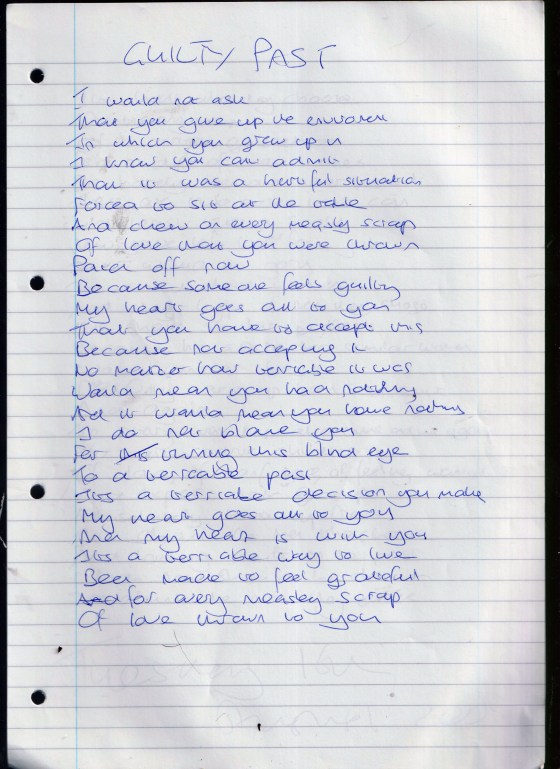 GUILTY PAST
I would not ask
That you give up the environment
In which you grew up in
I know you can admit
That it was a hateful situation
Forced to sit at the table
And chew on every measly scrap
Of love that you were thrown
Paid off now
Because someone feels guilty
My heart goes out to you
That you have to accept this
Because not accepting it
No matter how terrible it was
Would mean you had nothing
And it would mean you have nothing
I do not blame you
For turning this blind eye
To a terrible past
It's a terrible decision you make
My heart goes out to you
And my heart is with you
It's a terrible way to live
Been made to feel grateful
for every measley scrap
Of love thrown to you